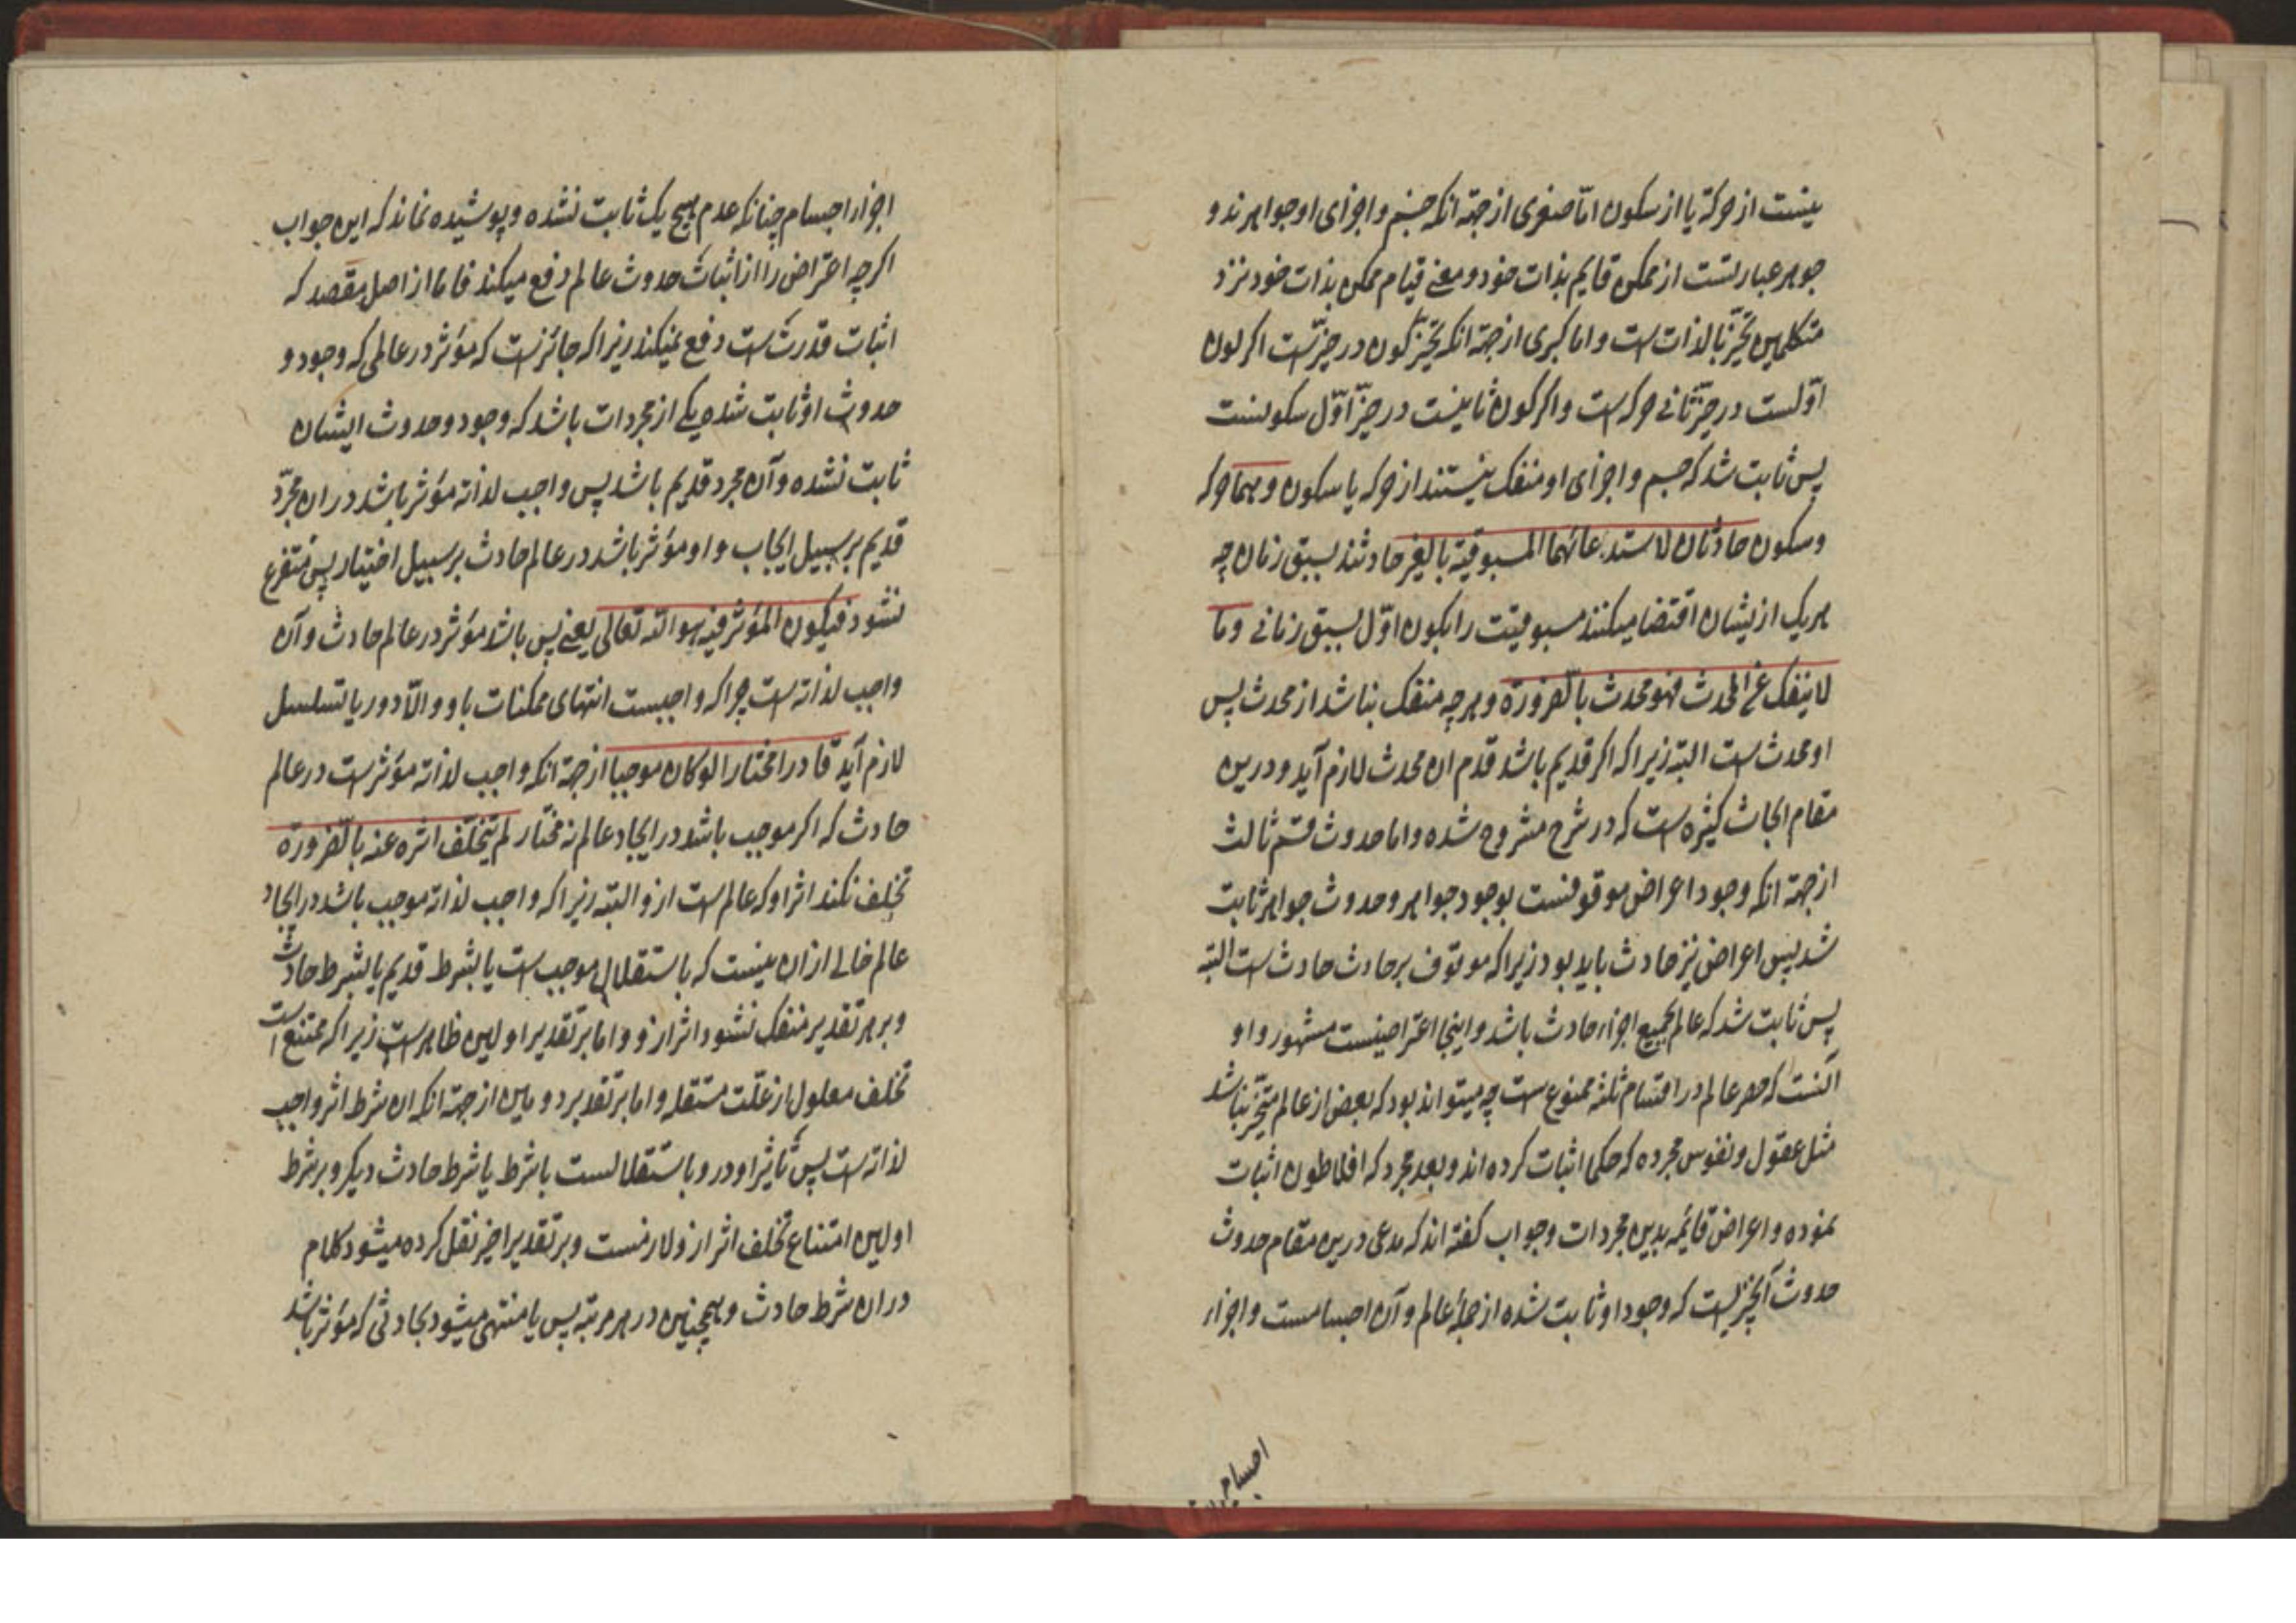 نیست از حرکة یا از سکون امّا صغری از جهة انکه جسم و اجزای او جواهرند و
جوهر عبارتست از ممکن قایم بذات خود و معنی قیام ممکن بذات خود نزد
متکلمین تحیّز بالذات است و اما کبری از جهة انکه تحیّز کون در حیّزست اکر کون
اوّلست در حیّز ثانی حرکه است و اکر کون ثانیست در حیّز اوّل سکونست
پس ثابت شد که جسم و اجزای او منفک نیستند از حرکه یا سکون و هما حرکه
و سکون حادثان لاستدعائهما المسبوقیة بالغیر حادثند بسبق زمان چه
هر یک ازیشان اقتضا میکنند مسبوقیّت را بکون اوّل بسبق زمانی و ما
لا ینفک عن المحدث فهو محدث بالضرورة و هرچه منفک نباشد از محدث پس
او محدث است البته زیرا که اکر قدیم باشد قدم ان محدث لازم آید و درین
مقام ابحاث کثیره است که در شرح مشروح شده و اما حدوث قسم ثالث
از جهة انکه وجود اعراض موقوفست بوجود جواهر و حدوث جواهر ثابت
شد پس اعراض نیز حادث باید بود زیرا که موقوف بر حادث حادث است البته
پس ثابت شد که عالم بجمیع اجزاء حادث باشد و اینجا اعتراضیست مشهور و او
آنست که حصر عالم در اقسام ثلثه ممنوع است چه میتواند بود که بعض از عالم متحیّز نباشد
مثل عقول و نفوس مجرده که حکما اثبات کرده اند و بعد مجرد که افلاطون اثبات
نموده و اعراض قائمه بدین مجردات و جواب کفته اند که مدعی درین مقام حدوث
حدوث آنچیزیست که وجود او ثابت شده از جملهٔ عالم و آن اجسامست و اجزاء
اجسام
اجزاء اجسام چنانکه عدم هیچ یک ثابت نشده و پوشیده نماند که این جواب
اکرچه اعتراض را از اثبات حدوث عالم دفع میکند فاما از اصل مقصد که
اثبات قدرت است دفع نمیکند زیرا که جائزست که مؤثر در عالمی که وجود و
حدوث او ثابت شده یکی از مجردات باشد که وجود و حدوث ایشان
ثابت نشده و آن مجرد قدیم باشد پس واجب لذاته مؤثر باشد در ان مجرّد
قدیم بر سبیل ایجاب و او مؤثر باشد در عالم حادث بر سبیل اختیار پس متفرع
نشود فیکون المؤثر فیه هو الله تعالی یعنی پس باشد مؤثر در عالم حادث و آن
واجب لذاته است چرا که واجبست انتهای ممکنات باو و الّا دور یا تسلسل
لازم آید قادرا مختارا لو کان موجبا از جهة انکه واجب لذاته مؤثر است در عالم
حادث که اکر موجب باشد در ایجاد عالم نه مختار لم یتخلّف اثره عنه بالضرورة
تخلف نکند اثر او که عالم است ازو البته زیرا که واجب لذاته موجب باشد در ایجاد
عالم خالی ازان نیست که باستقلال موجب است یا بشرط قدیم یا بشرط حادث
و بر هر تقدیر منفک نشود اثر ازو و اما بر تقدیر اولین ظاهر است زیرا که ممتنع است
تخلف معلول از علّت مستقله و اما بر تقدیر دومین از جهة انکه ان شرط اثر واجب
لذاته است پس تاثیر او درو باستقلالست یا شرط یا شرط حادث دیکر و بر شرط
اولین امتناع تخلف اثر ازو لازمست و بر تقدیر اخیر نقل کرده میشود کلام
در ان شرط حادث و همچنین در هر مرتبه پس یا منتهی میشود بحادثی که مؤثر باشد